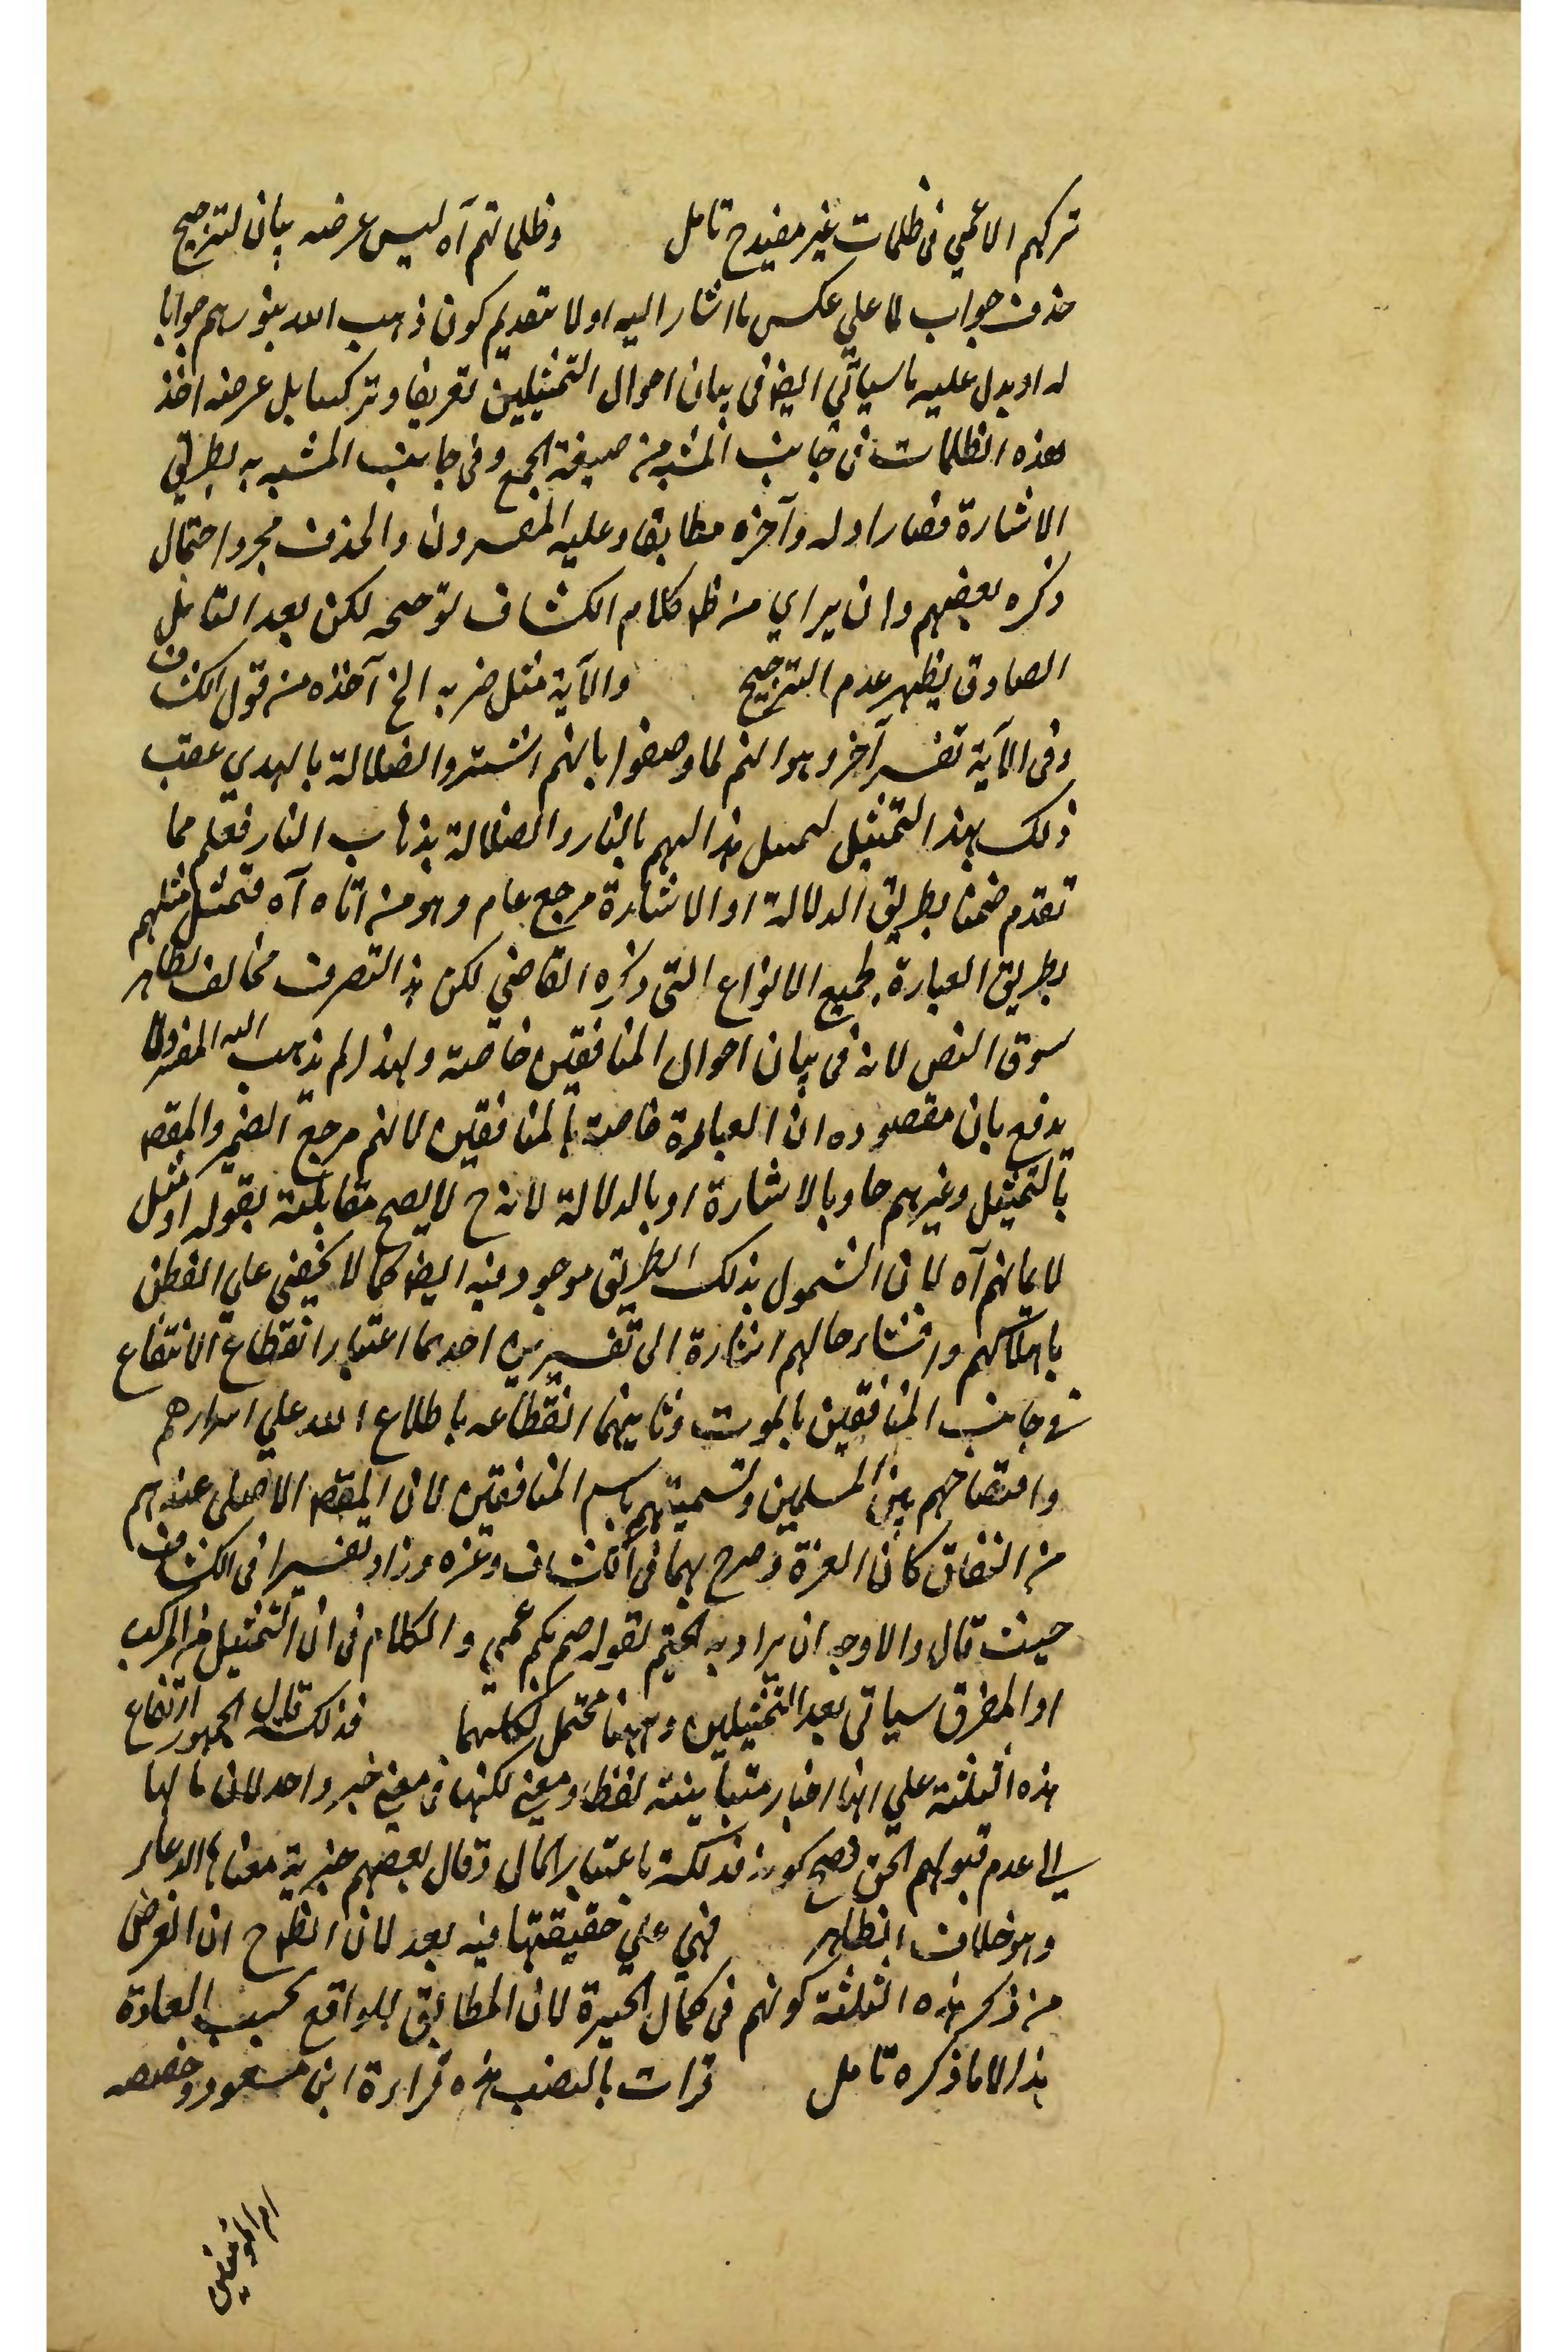 تركهم الاعمي في ظلمات غير مفيدح تامل وظلماتهم آه ليس غرضه بيان لترجيح
حذف جواب لما علي عكس ما اشار اليه اولا بتقديم كون ذهب الله بنورهم جوابا
له او بدل عليه ما سيأتي ايضا في بيان احوال التمثيلين تفريقا وتركيبا بل غرضه اخذ
هذه الظلمات في جانب المشبه من صيغة الجمع وفي جانب المشبه به بطريق
الاشارة فصار اوله وآخره مطابقا وعليه المفسرون والحذف مجرد احتمال
ذكره بعضهم وان يراي من ظ كلام الكشاف توجيحه لكن بعد التامل
الصادق يظهر عدم الترجيح والآية مثل ضربه الخ آخذه من قول الكشاف
وفي الآية تفسير آخر وهو انهم لما وصفوا بانهم اشتروا الضلالة بالهدي عقب
ذلك بهذا التمثيل ليمثل هداهم بالنار والضلالة بذهاب النار فعلم مما
تقدم ضمنا بطريق الدلالة او الاشارة مرجع عام وهو من اتاه آه فتمثل مثلهم
بطريق العبارة لجميع الانواع التي ذكره القاضي لكن هذا التصرف مخالف لظاهر
سوق النص لانه في بيان احوال المنافقين خاصة ولهذا لم يذهب اليه المفسرون
يدفع بان مقصوده ان العبارة خاصة بالمنافقين لانهم مرجع الضمير والمقصد
بالتمثيل وغيرهم جاء بالاشارة او بالدلالة لانه ح لا يصح مقابلته بقوله او مثل
لايمانهم آه لان الشمول بذلك الطريق موجود فيه ايضا كما لا يخفي علي الفطن
باهلاكهم وافشاء حالهم اشارة الى تفسيرين احدهما اعتبار انقطاع الانتفاع
في جانب المنافقين بالموت وثانيهما انقطاعه باطلاع الله علي اسرارهم
وافتضاحهم بين المسلمين وتسميتهم باسم المنافقين لان المقصد الاصلي عندهم
من النفاق كان العزة وصرح بهما في الكشاف وغيره وزاد تفسيرا في الكشاف
حيث قال والاوجه ان يراد به الختم لقوله صم بكم عمي والكلام في ان التمثيل من المركب
او المفرق سياتي بعد التمثيلين وههنا محتمل لكليهما فذلكة قال الجمهور ارتفاع
هذه الثلثة علي انها اخبار متباينة لفظا ومعني لكنها في معني خبر واحد لان مالها
الي عدم قبولهم الحق فصح كونه فذلكة باعتبار المال وقال بعضهم خبرية معناها الدعاء
وهو خلاف الظاهر فهي علي حقيقتها فيه بعد لان الظ ح ان الغرض
من ذكر هذه الثلثة كونهم في كمال الحيرة لان المطابق للواقع بحسب العادة
هذا لا ما ذكره تامل قرات بالنصب هذه قراءة ابن مسعود وحفصه
ام المؤمنين